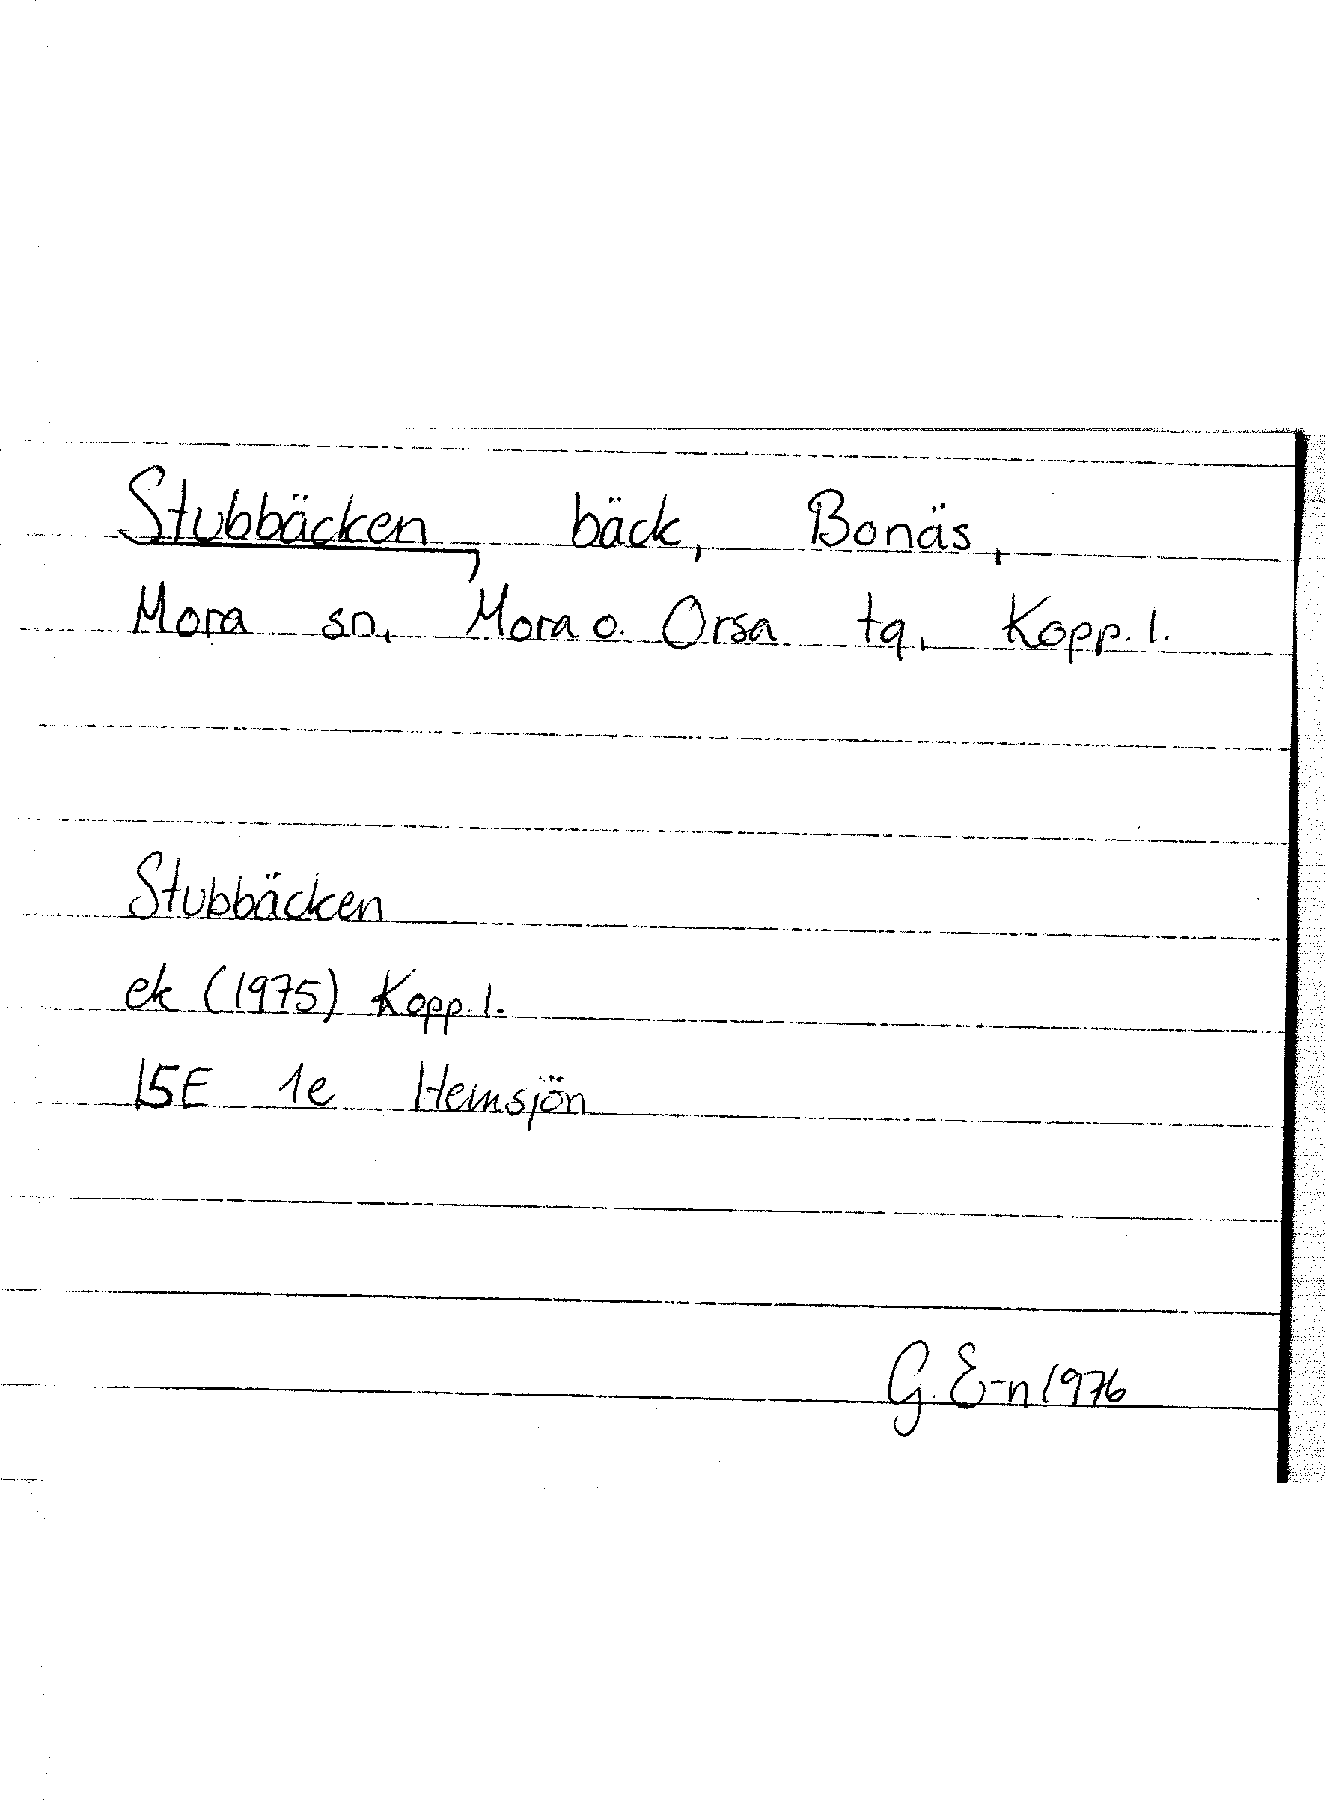 Stubbäcken, bäck, Bonäs,
Mora sn, Mora o. Orsa tg, Kopp. l.
Stubbäcken
ek (1975) Kopp. l.
15E 1e Hemsjön
G. E-n 1976